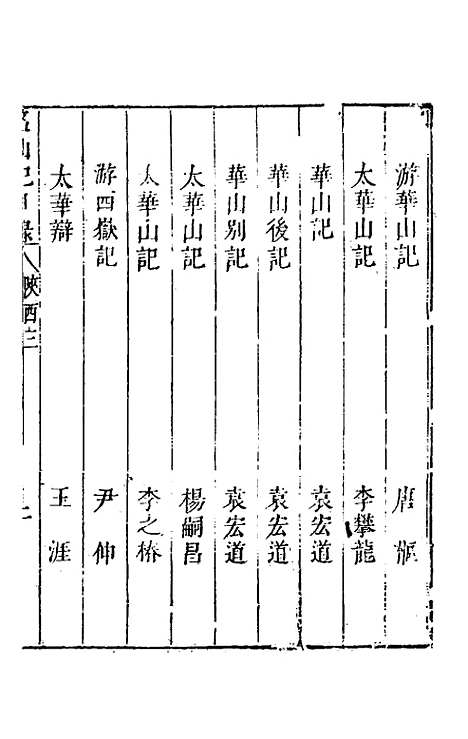 游華山記 唐樞
太華山記 李攀龍
華山記 袁宏道
華山後記 袁宏道
華山別記 袁宏道
太華山記 楊嗣昌
太華山記 李之椿
游西嶽記 尹伸
太華辯 王涯
名山記目錄 陝西二